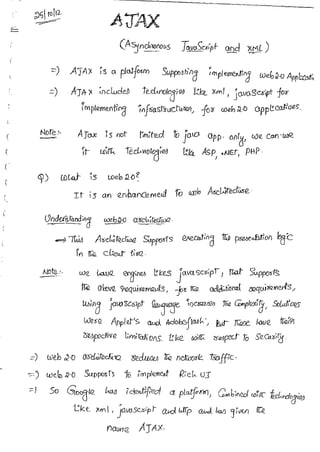 25/10/12
AJAX
(Asynchronous JavaScript and XML)
=) AJAX is a platform Supporting implementing web 2.0 Applicati
=) AJAX includes technologies like xml, javascript for
implementing infrastructure, for web 2.0 applications.
Note:- Ajax is not limited to java app. only, we can use
it with Technologies like ASP, .NET, PHP.
Q) what is web 2.0?
It is an enhancement to web Architecture.
Understanding web 2.0 architecture.
→ This Architecture Supports executing the presentation logic
in the client tire.
Note:- we have engines likes javascript, that Supports
the above requirements, for the additional requirements,
using javascript language increases the Complexity, Solutions
were Applet's and Adobeflash', But these have their
respective limitations. like with respect to Security
=) web 2.0 architecture reduces the network traffic.
=) web 2.0 Supports to implement Rich UI
=) So Google has identified a platform, Combined with technologies
like xml, javascript and http and has given the
name AJAX.